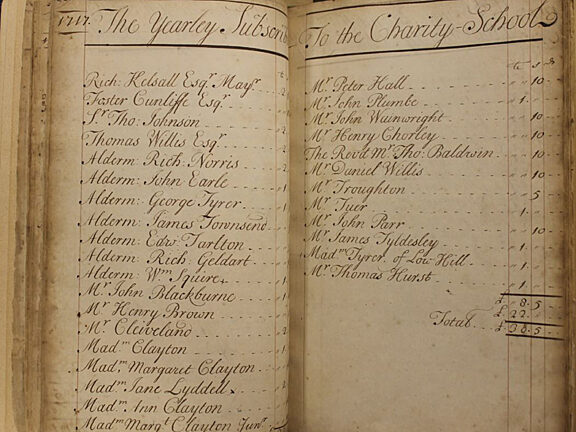 1717. The Yearley Subscrib
Rich: Kelsall Esqr. Mayr. 2
Foster Cunliffe Esqr. 2
Sr. Tho: Johnson 2
Thomas Willis Esqr. 2
Alderm: Rich: Norris 2
Alderm: John Earle 1
Alderm: George Tyrer 1
Alderm: James Townsend
Alderm: Edwd Tarlton
Alderm: Rich: Geldart 1
Alderm: Wm Squire 1
Mr. John Blackburne 1
Mr. Henry Brown
Mr. Cleiveland 2
Madm. Clayton 1
Madm. Margaret Clayton
Madm. Jane Lyddell
Madm. Ann Clayton
Madm Margt. Clayton Junr.
To the Charity-School
s d
Mr. Peter Hall 10
Mr. John Plumbe 1
Mr. John Wainwright 10
Mr. Henry Chorley 10
The Revd. Mr. Tho: Baldwin 10
Mr. Daniel Willis 10
Mr. Troughton 5
Mr. Tuer 1
Mr. John Parr 10
Mr. James Tyldesley 1
Madm. Tyrer of Low-Hill 1
Mr. Thomas Hurst 1
£ 8.5
£
Total £ 5